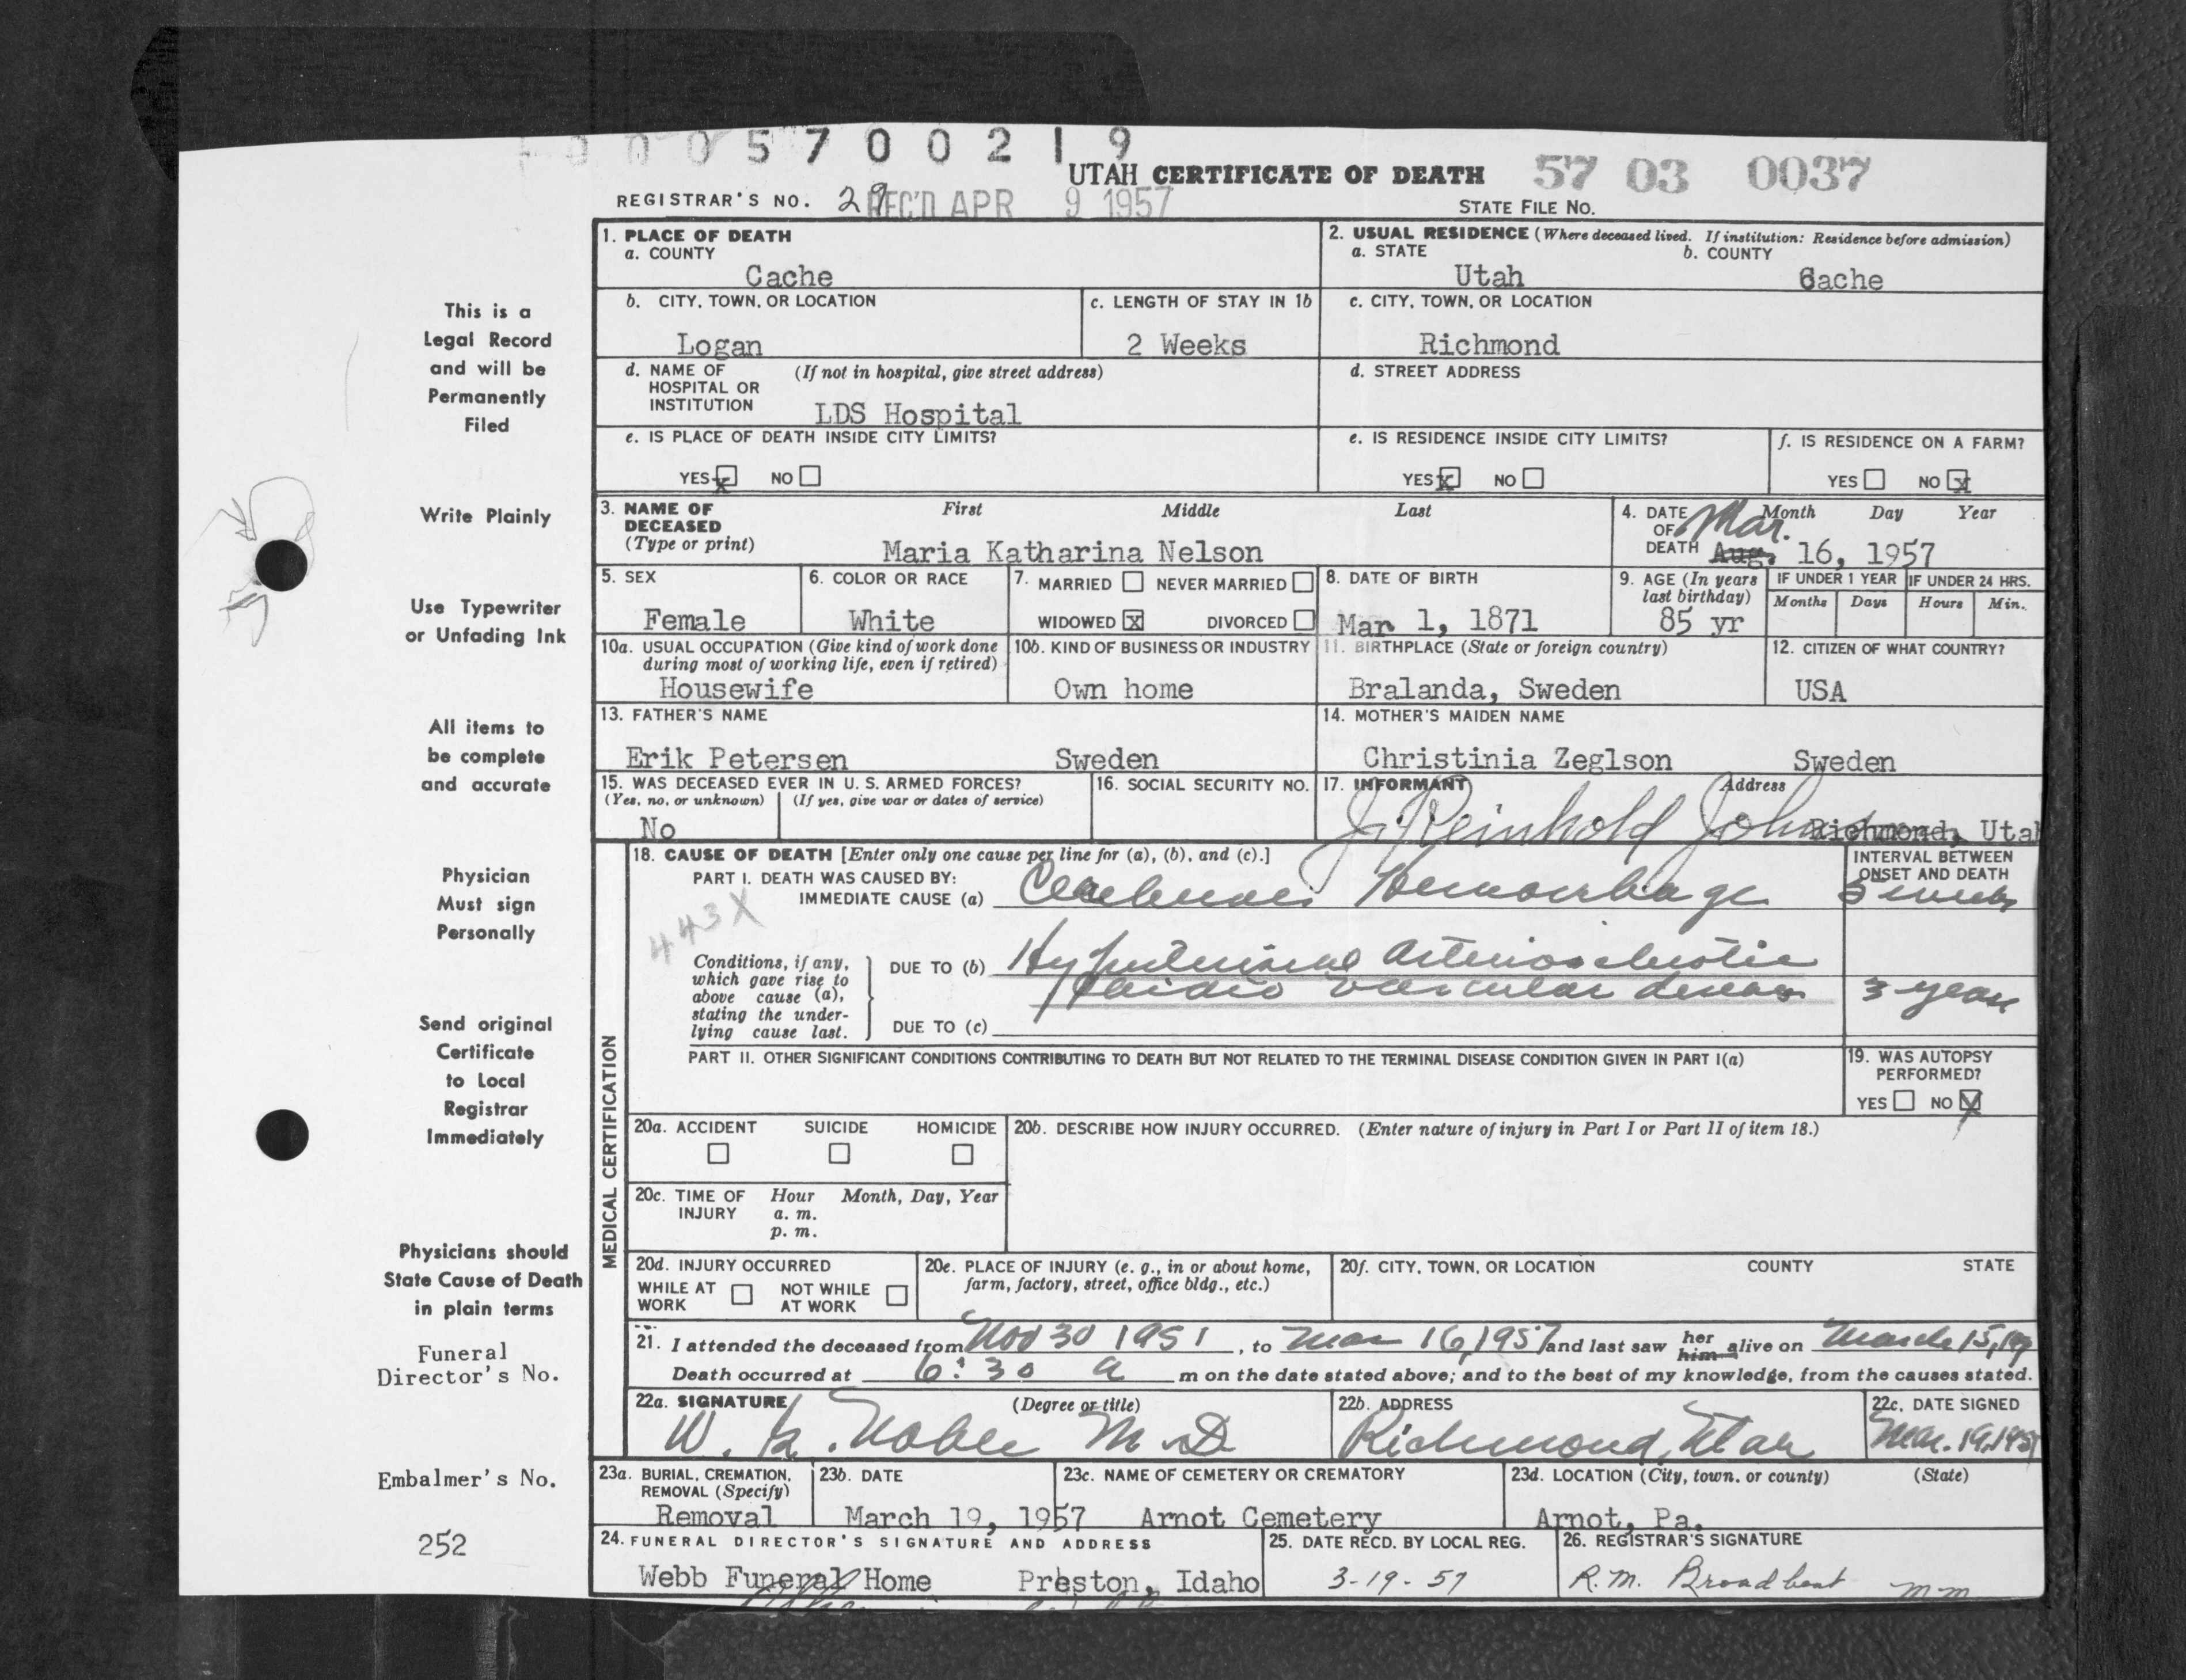 0005700219
UTAH CERTIFICATE OF DEATH 57 03 0037
REGISTRAR'S NO. 29 REC'D APR 9 1957 STATE FILE NO.
1. PLACE OF DEATH
a. COUNTY
Cache
2. USUAL RESIDENCE (Where deceased lived. If institution: Residence before admission)
a. STATE b. COUNTY
Utah Cache
b. CITY, TOWN, OR LOCATION
Logan
c. LENGTH OF STAY IN 1b
2 Weeks
c. CITY, TOWN, OR LOCATION
Richmond
d. NAME OF HOSPITAL OR INSTITUTION (If not in hospital, give street address)
LDS Hospital
d. STREET ADDRESS
e. IS PLACE OF DEATH INSIDE CITY LIMITS?
YES x NO
e. IS RESIDENCE INSIDE CITY LIMITS?
YES x NO
f. IS RESIDENCE ON A FARM?
YES NO x
3. NAME OF DECEASED (Type or print) First Middle Last
Maria Katharina Nelson
4. DATE OF DEATH Month Day Year
Mar.
Aug. 16, 1957
5. SEX
Female
6. COLOR OR RACE
White
7. MARRIED NEVER MARRIED
WIDOWED x DIVORCED
8. DATE OF BIRTH
Mar 1, 1871
9. AGE (In years last birthday)
85 yr
IF UNDER 1 YEAR IF UNDER 24 HRS.
Months Days Hours Min.
10a. USUAL OCCUPATION (Give kind of work done during most of working life, even if retired)
Housewife
10b. KIND OF BUSINESS OR INDUSTRY
Own home
11. BIRTHPLACE (State or foreign country)
Bralanda, Sweden
12. CITIZEN OF WHAT COUNTRY?
USA
13. FATHER'S NAME
Erik Petersen Sweden
14. MOTHER'S MAIDEN NAME
Christinia Zeglson Sweden
15. WAS DECEASED EVER IN U. S. ARMED FORCES?
(Yes, no, or unknown) (If yes, give war or dates of service)
No
16. SOCIAL SECURITY NO.
17. INFORMANT Address
J. Reinhold Johnson Richmond, Utah
MEDICAL CERTIFICATION
18. CAUSE OF DEATH [Enter only one cause per line for (a), (b), and (c).]
INTERVAL BETWEEN ONSET AND DEATH
PART I. DEATH WAS CAUSED BY:
IMMEDIATE CAUSE (a) Cerebral Hemorrhage weeks
443X
Conditions, if any, which gave rise to above cause (a), stating the underlying cause last.
DUE TO (b) Hypertensive Arteriosclerotic
Cardio Vascular disease 3 years
DUE TO (c)
PART II. OTHER SIGNIFICANT CONDITIONS CONTRIBUTING TO DEATH BUT NOT RELATED TO THE TERMINAL DISEASE CONDITION GIVEN IN PART I(a)
19. WAS AUTOPSY PERFORMED?
YES NO
20a. ACCIDENT SUICIDE HOMICIDE
20b. DESCRIBE HOW INJURY OCCURRED. (Enter nature of injury in Part I or Part II of item 18.)
20c. TIME OF INJURY Hour Month, Day, Year
a. m.
p. m.
20d. INJURY OCCURRED
WHILE AT WORK NOT WHILE AT WORK
20e. PLACE OF INJURY (e. g., in or about home, farm, factory, street, office bldg., etc.)
20f. CITY, TOWN, OR LOCATION COUNTY STATE
21. I attended the deceased from Nov 30 1951, to Mar 16, 1957 and last saw her him alive on March 15, 19
Death occurred at 6:30 a m on the date stated above; and to the best of my knowledge, from the causes stated.
22a. SIGNATURE (Degree or title)
W. R. Noble M D
22b. ADDRESS
Richmond, Utah
22c. DATE SIGNED
Mar. 19, 1957
23a. BURIAL, CREMATION, REMOVAL (Specify)
Removal
23b. DATE
March 19, 1957
23c. NAME OF CEMETERY OR CREMATORY
Arnot Cemetery
23d. LOCATION (City, town, or county) (State)
Arnot, Pa.
24. FUNERAL DIRECTOR'S SIGNATURE AND ADDRESS
Webb Funeral Home Preston, Idaho
25. DATE RECD. BY LOCAL REG.
3-19-57
26. REGISTRAR'S SIGNATURE
R. M. Broadbent mm
This is a
Legal Record
and will be
Permanently
Filed
Write Plainly
Use Typewriter
or Unfading Ink
All items to
be complete
and accurate
Physician
Must sign
Personally
Send original
Certificate
to Local
Registrar
Immediately
Physicians should
State Cause of Death
in plain terms
Funeral
Director's No.
Embalmer's No.
252